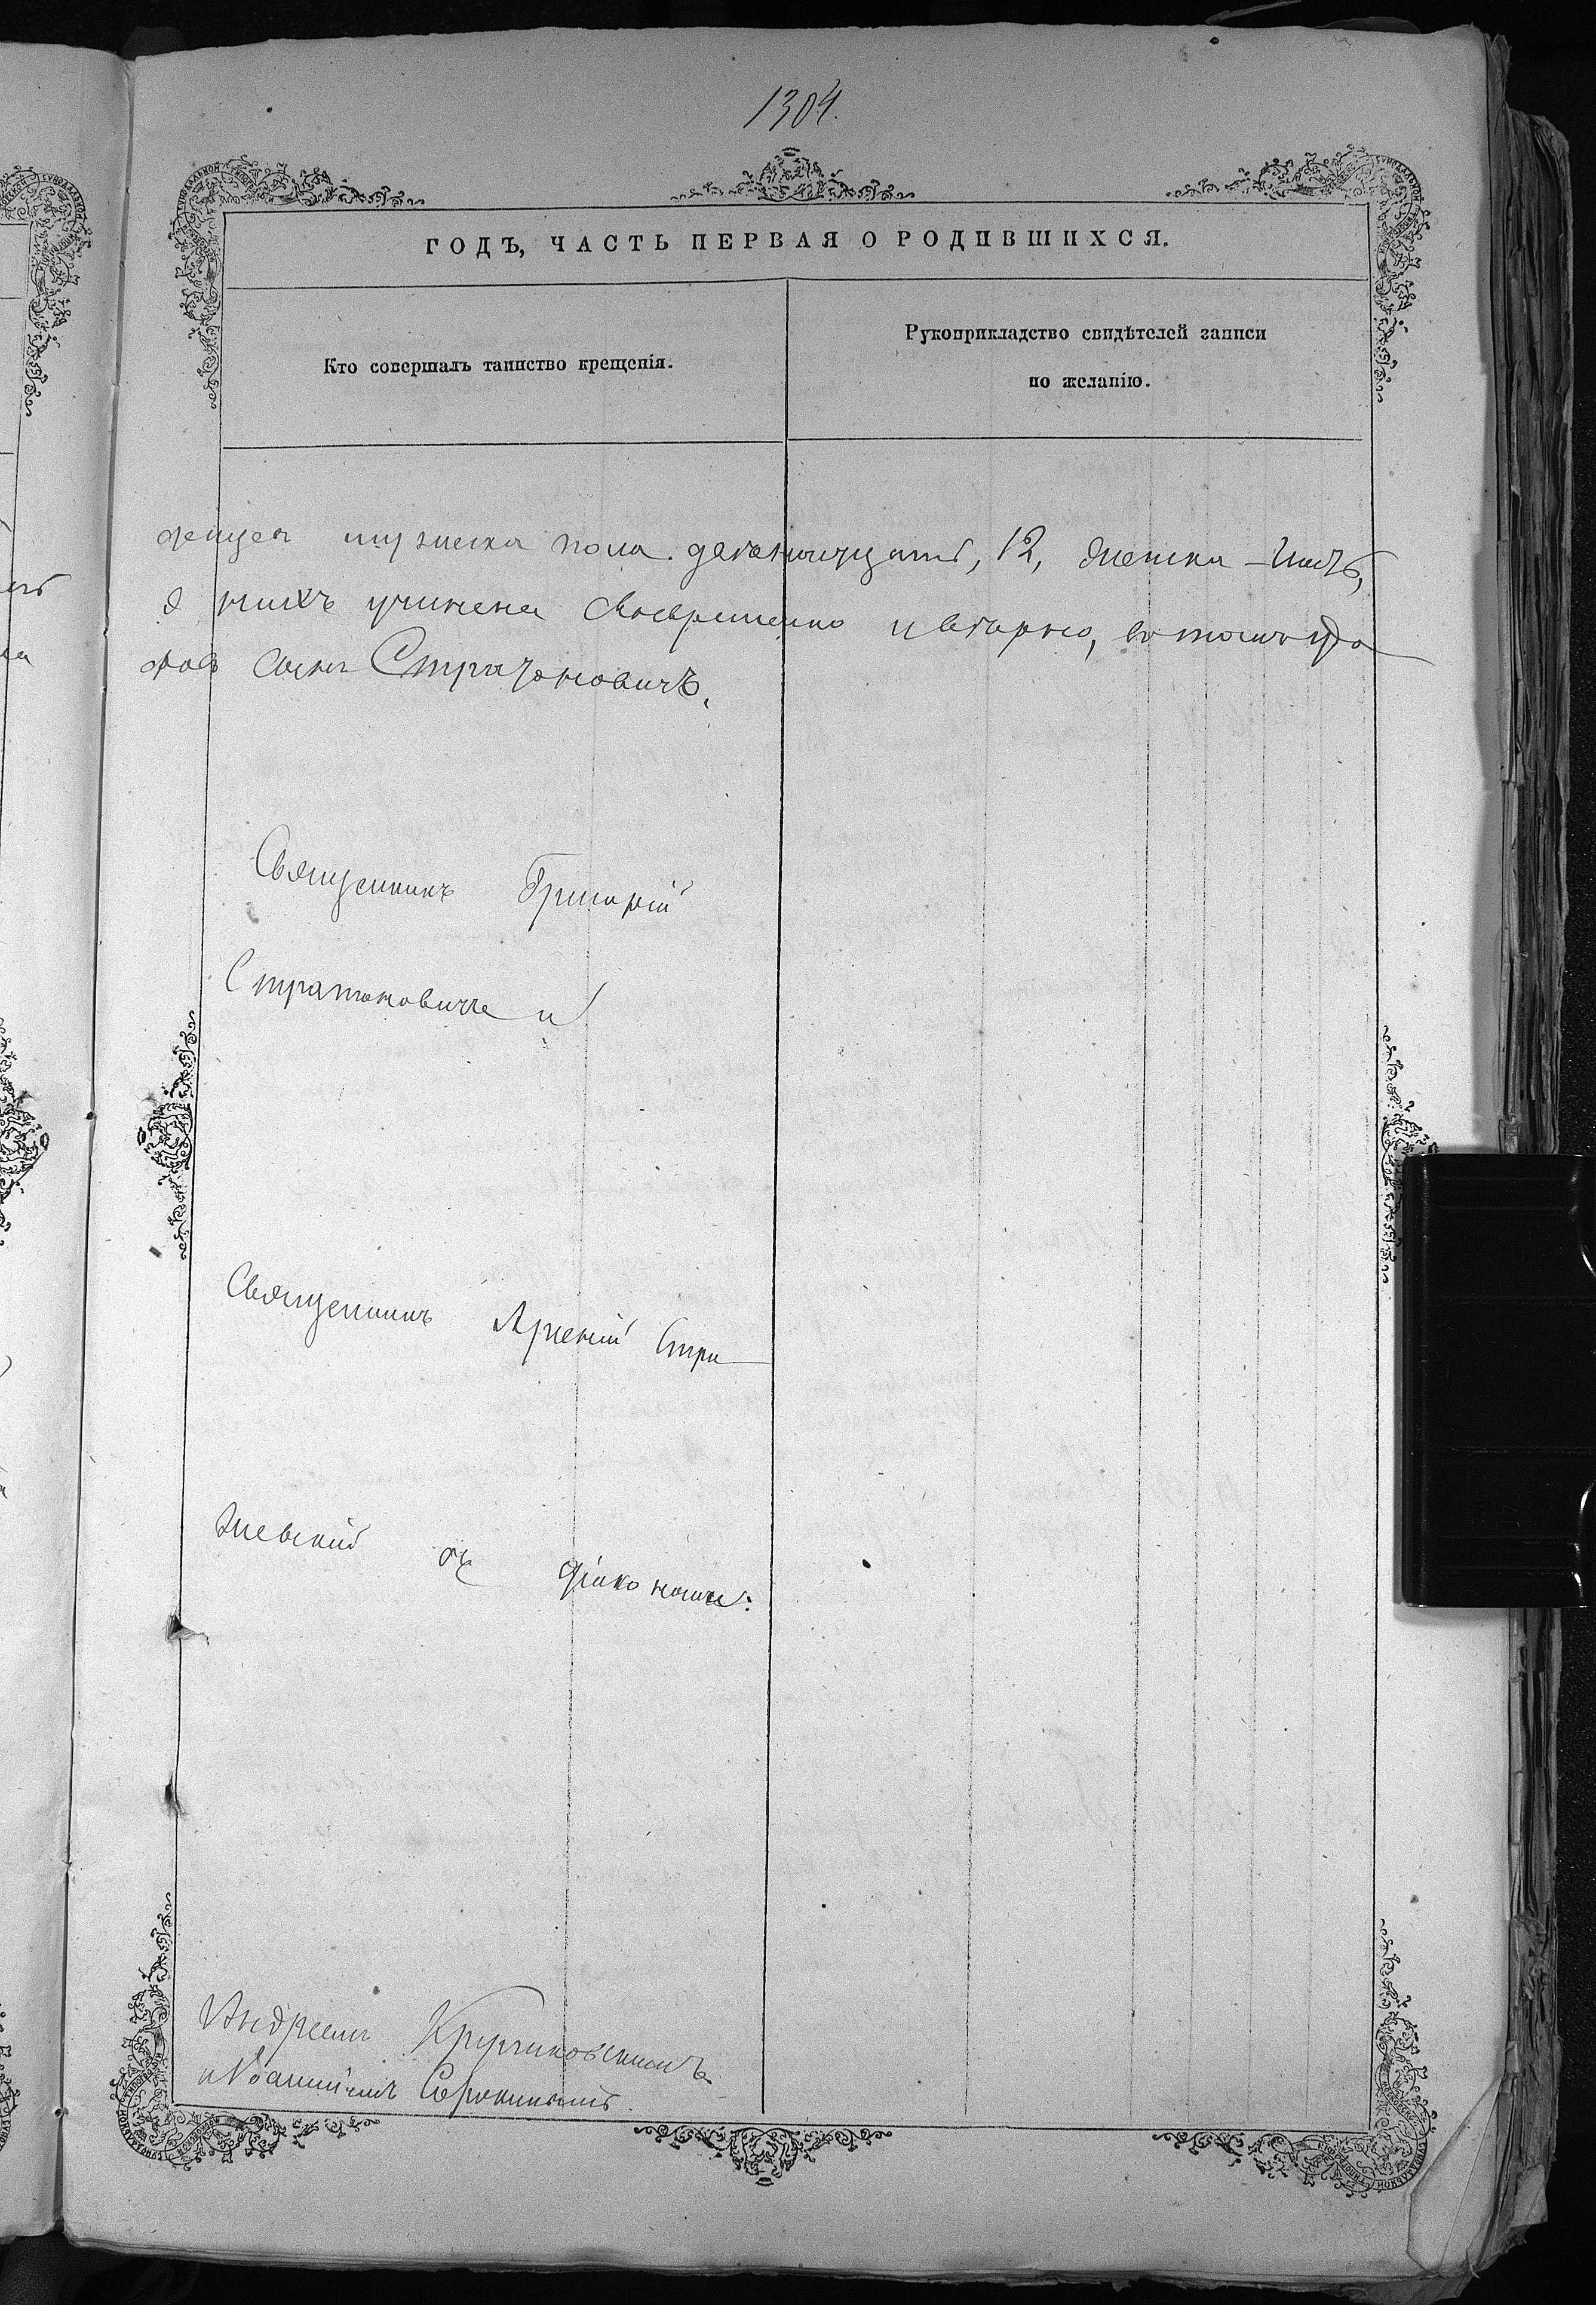 1304.
ГОДЪ, ЧАСТЬ ПЕРВАЯ О РОДИВШИХСЯ.
Кто совершалъ таинство крещенія.
Рукоприкладство свидѣтелей записи
по желанію.
мужеска пола двѣнадцать, 12, женска
о нихъ учинена своевременно и вѣрно, въ томъ удо
Стратоновичъ.
Священникъ Григорій
Стратоновичъ и
Священникъ Арсеній Стри
жевскій съ діакономъ:
Андреемъ Кручиковскимъ
и Іоанномъ Сорокинымъ.